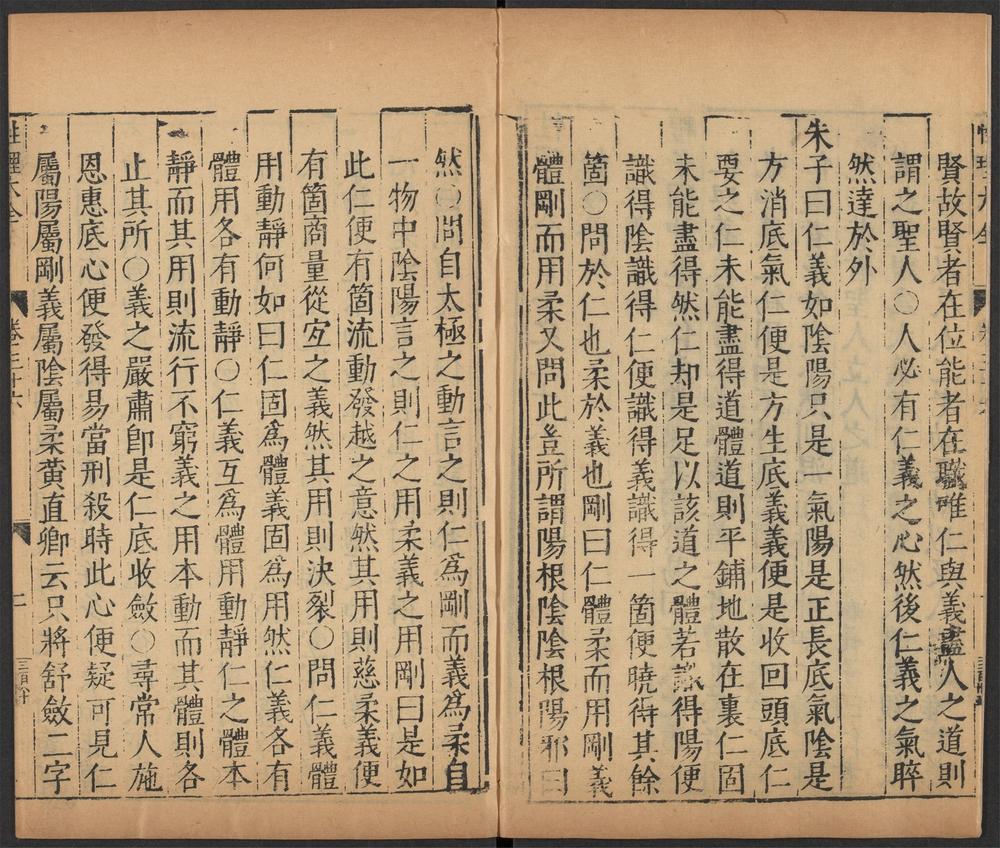 性理大全
賢故賢者在位能者在職唯仁與義盡人之道則
謂之聖人○人必有仁義之心然後仁義之氣睟
然達於外
朱子曰仁義如陰陽只是一氣陽是正長底氣陰是
方消底氣仁便是方生底義義便是收回頭底仁
要之仁未能盡得道體道則平鋪地散在裏仁固
未能盡得然仁却是足以該道之體若識得陽便
識得陰識得仁便識得義識得一箇便曉得其餘
箇○問於仁也柔於義也剛曰仁體柔而用剛義
體剛而用柔又問此豈所謂陽根陰陰根陽邪曰
然○問自太極之動言之則仁爲剛而義爲柔自
一物中陰陽言之則仁之用柔義之用剛曰是如
此仁便有箇流動發越之意然其用則慈柔義便
有箇商量從宜之義然其用則決裂○問仁義體
用動靜何如曰仁固爲體義固爲用然仁義各有
體用各有動靜○仁義互爲體用動靜仁之體本
靜而其用則流行不窮義之用本動而其體則各
止其所○義之嚴肅卽是仁底收斂○尋常人施
恩惠底心便發得易當刑殺時此心便疑可見仁
屬陽屬剛義屬陰屬柔黃直卿云只將舒斂二字
性理大全
卷三十六
二